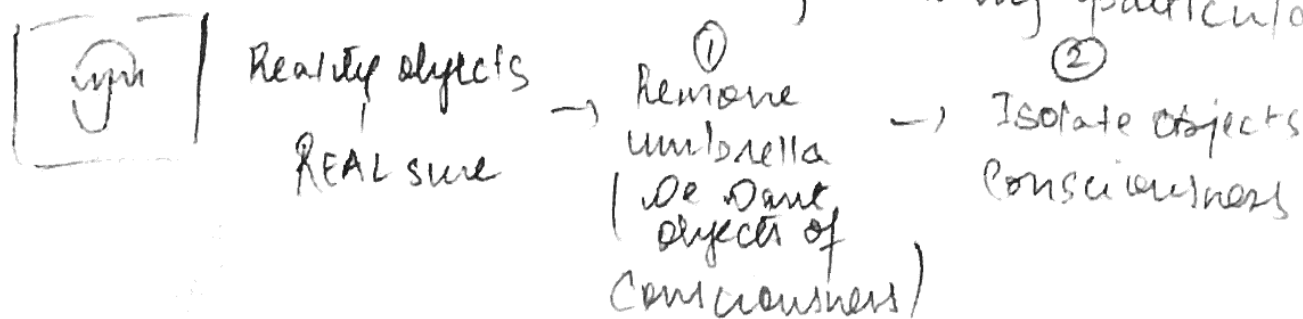 particula
Reality objects
REAL sure
→ ① Remove
umbrella
( De
objects of
Consciousness)
→ ② Isolate objects
Consciousness